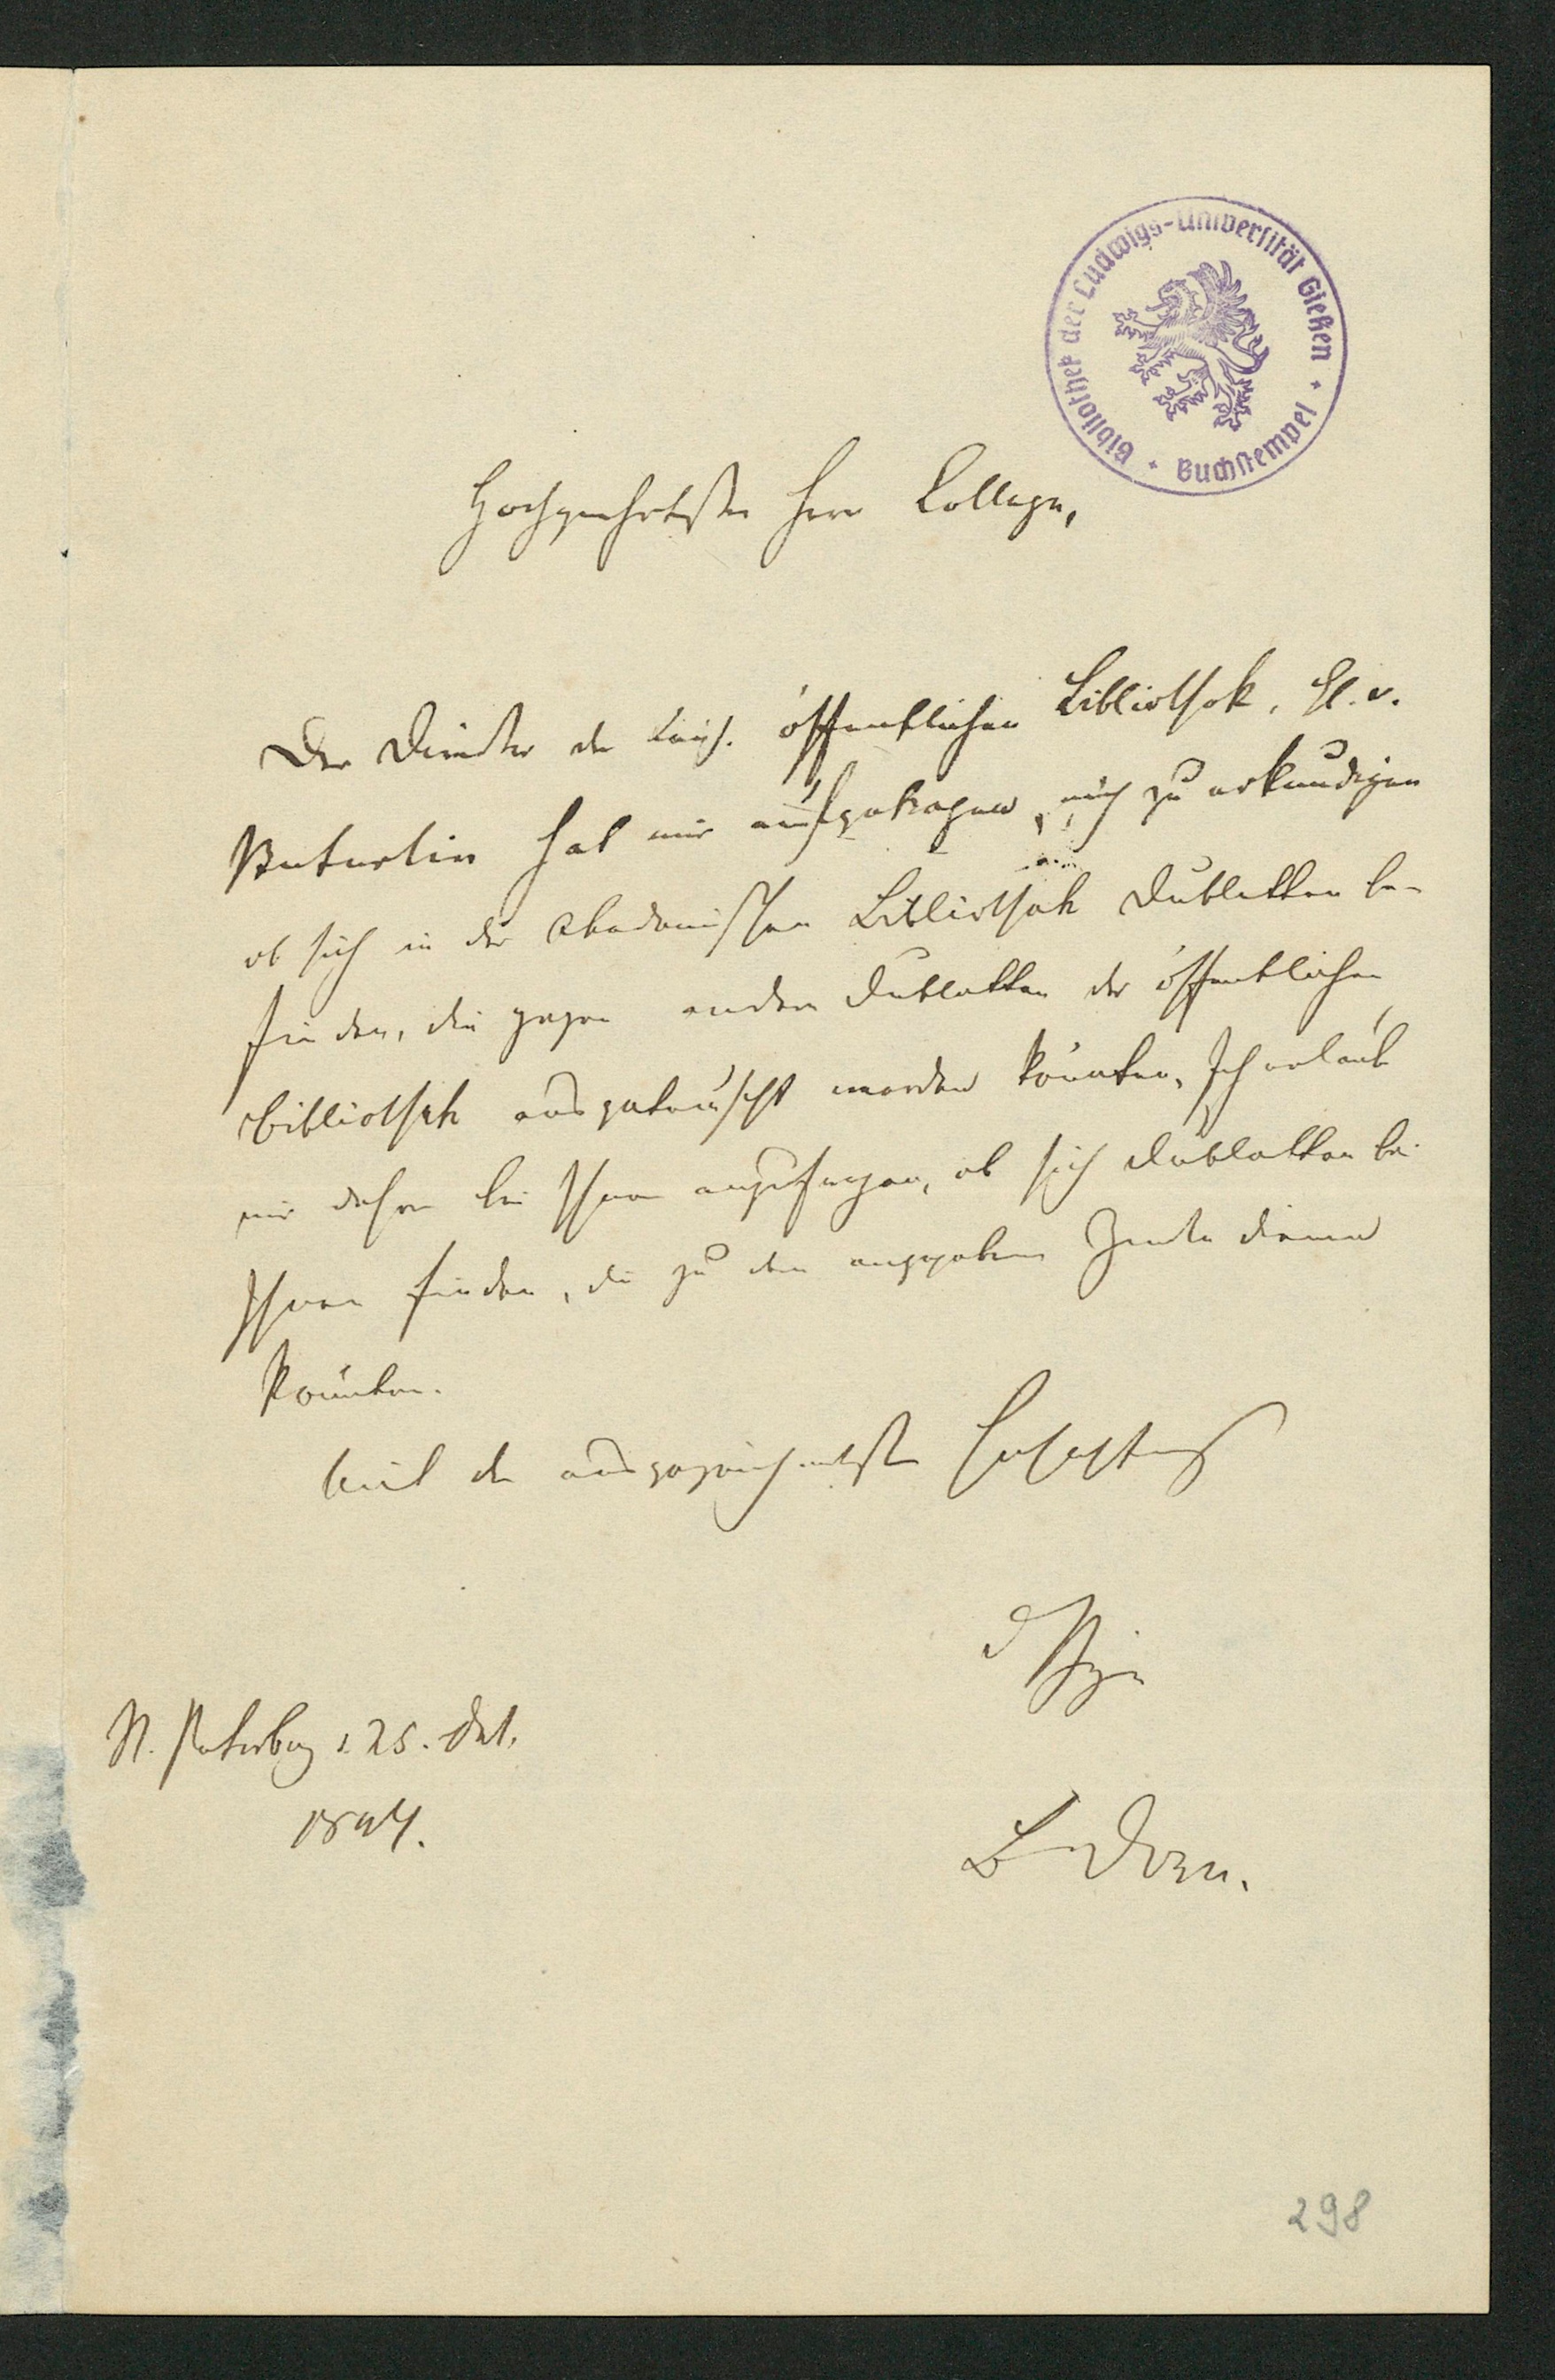 Bibliothek der Ludwigs-Universität Gießen + Buchstempel +
Hochgeehrtester Herr College,
Der Director der kais. öffentlichen Bibliothek, H. v.
Buturlin hat mir aufgetragen, mich zu erkundigen
ob sich in der akademischen Bibliothek Dubletten be-
finden, die gegen andere Dubletten der öffentlichen
Bibliothek ausgetauscht werden könnten. Ich erlaube
mir daher bei Ihnen anzufragen, ob sich Dubletten bei
Ihnen finden, die zu dem angegebenen Zwecke dienen
könnten.
Mit der ausgezeichnetsten Hochachtung
Ihrige
St. Petersburg d. 25. Oct.
1844.
B Dorn.
298